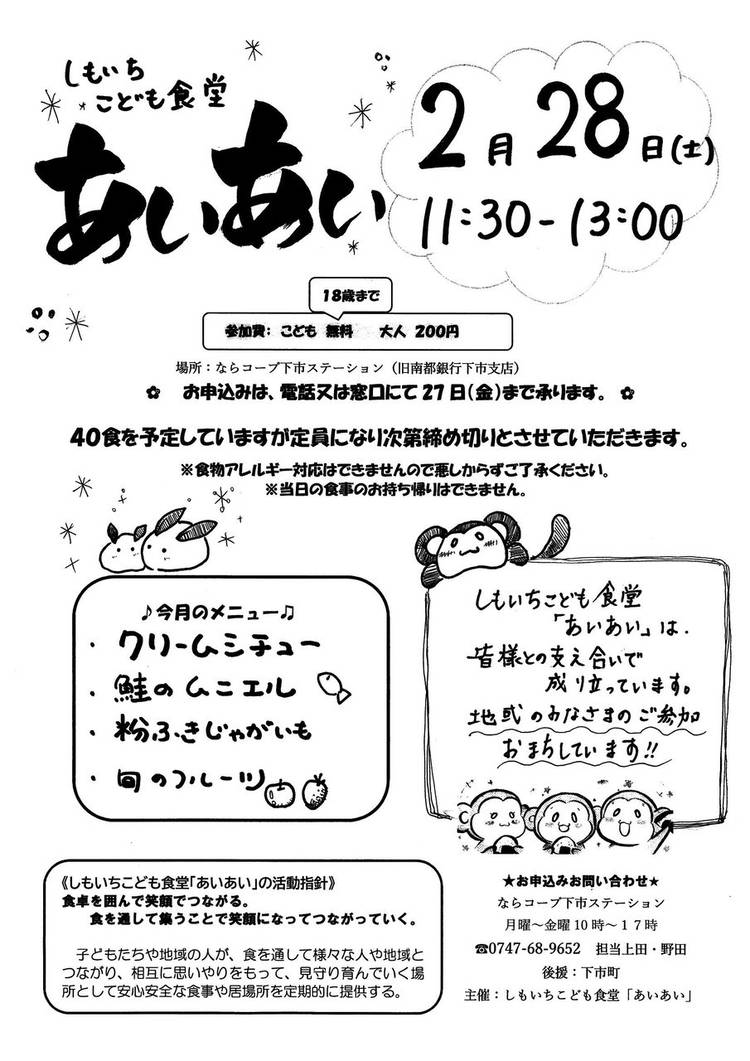 しもいち
こども食堂
あいあい
2月28日(土)
11:30-13:00
18歳まで
参加費: こども 無料 大人 200円
場所：ならコープ下市ステーション（旧南都銀行下市支店）
✿ お申込みは、電話又は窓口にて27日(金)まで承ります。 ✿
40食を予定していますが定員になり次第締め切りとさせていただきます。
※食物アレルギー対応はできませんので悪しからずご了承ください。
※当日の食事のお持ち帰りはできません。
♪今月のメニュー♫
・クリームシチュー
・鮭のムニエル
・粉ふきじゃがいも
・旬のフルーツ
しもいちこども食堂
「あいあい」は、
皆様との支え合いで
成り立っています。
地域のみなさまのご参加
おまちしています!!
《しもいちこども食堂「あいあい」の活動指針》
食卓を囲んで笑顔でつながる。
食を通して集うことで笑顔になってつながっていく。
子どもたちや地域の人が、食を通して様々な人や地域と
つながり、相互に思いやりをもって、見守り育んでいく場
所として安心安全な食事や居場所を定期的に提供する。
★お申込みお問い合わせ★
ならコープ下市ステーション
月曜～金曜10時～17時
☎0747-68-9652 担当上田・野田
後援：下市町
主催：しもいちこども食堂「あいあい」